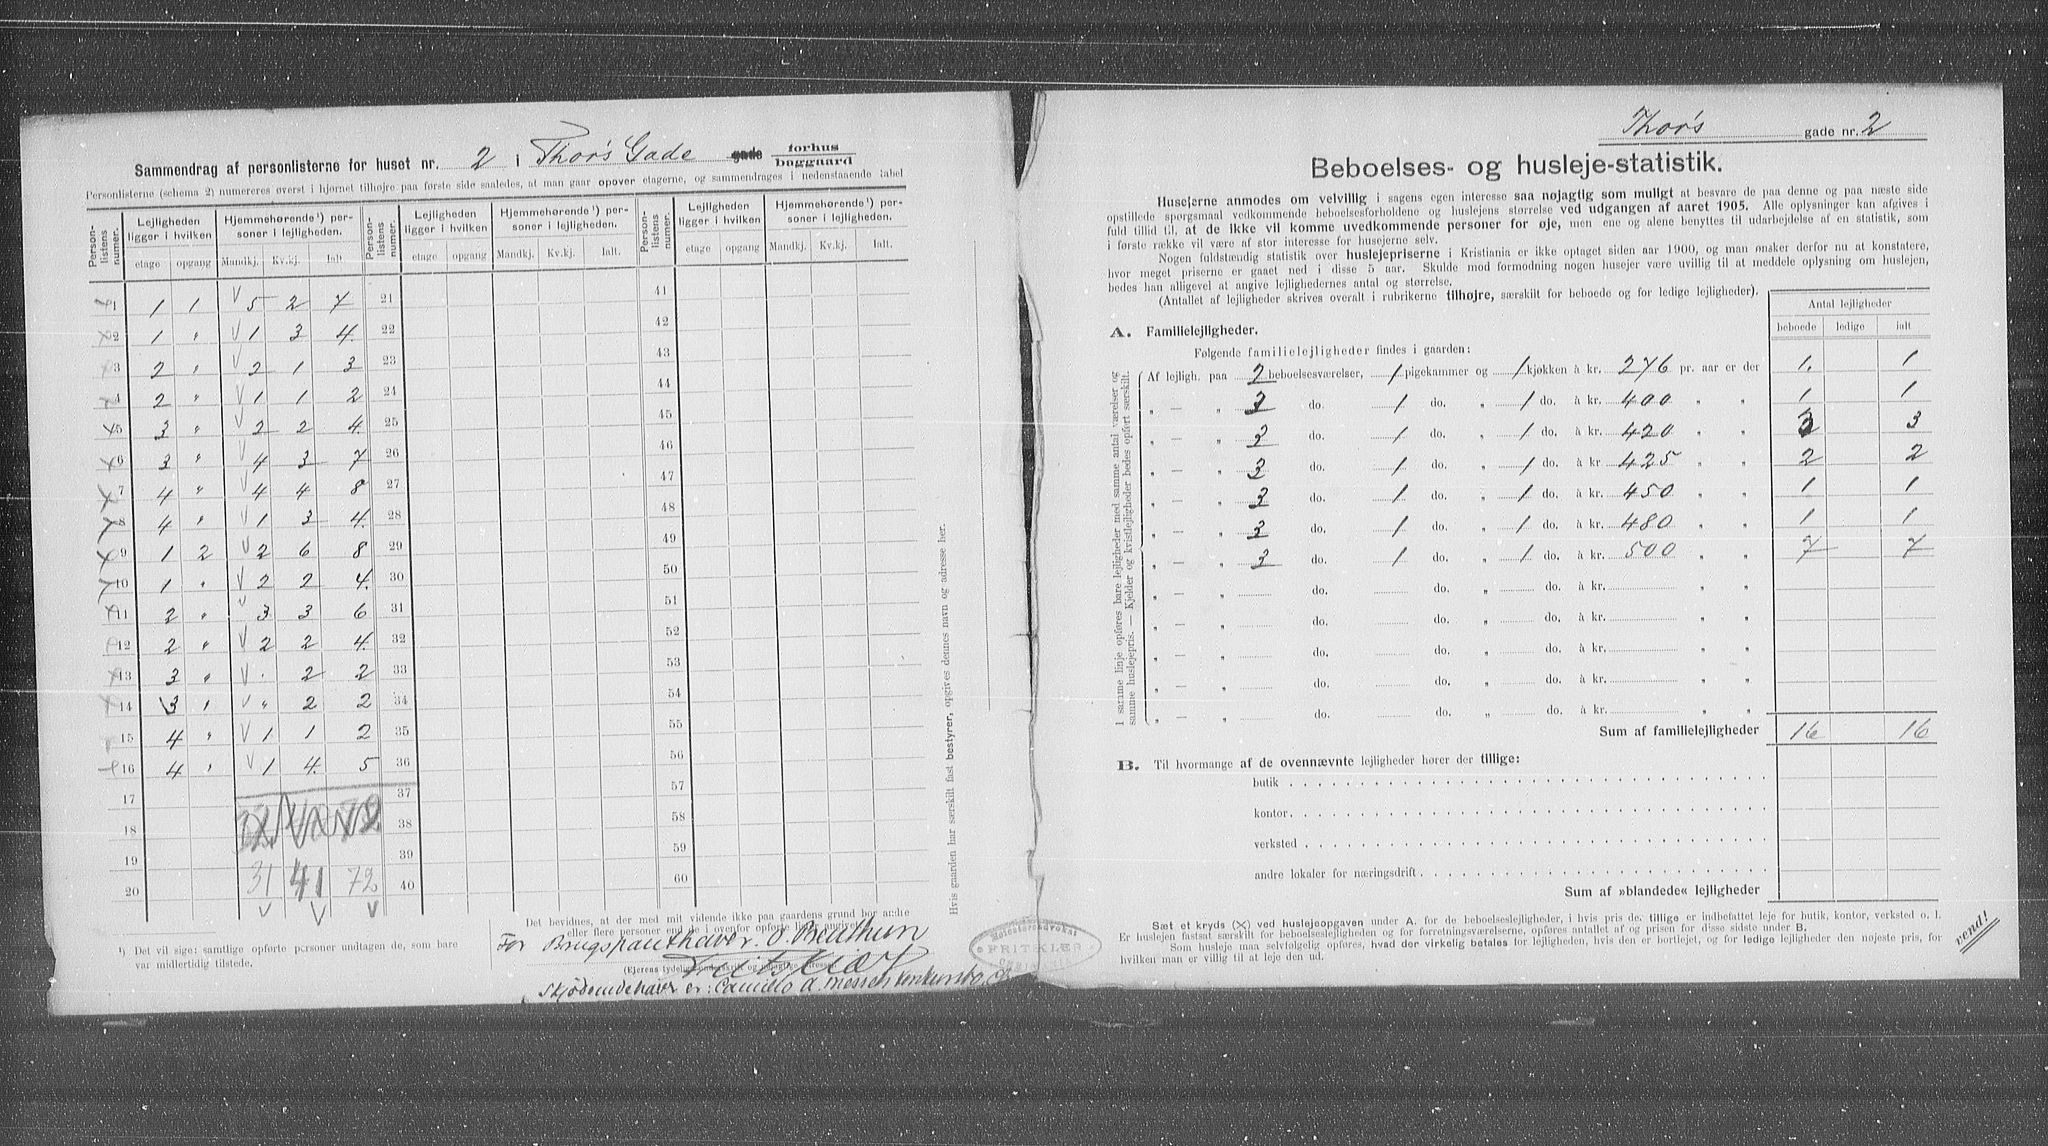 Sammendrag af personlisterne for huset nr. 2 i Thor's Gade gade forhus baggaard
Personlisterne (schema 2) numereres øverst i hjørnet tilhøjre paa første side saaledes, at man gaar opover etagerne, og sammendrages i nedenstaaende tabel
Person-listens nummer. Lejligheden ligger i hvilken Hjemmehørende¹) personer i lejligheden. Person-listens nummer. Lejligheden ligger i hvilken Hjemmehørende¹) personer i lejligheden. Person-listens nummer. Lejligheden ligger i hvilken Hjemmehørende¹) personer i lejligheden.
etage opgang Mandkj. Kv.kj. Ialt. etage opgang Mandkj. Kv.kj. Ialt. etage opgang Mandkj. Kv.kj. Ialt.
1 1 1 5 2 7 21 41
2 1 " 1 3 4 22 42
3 2 " 2 1 3 23 43
4 2 " 1 1 2 24 44
5 3 " 2 2 4 25 45
6 3 " 4 3 7 26 46
7 4 " 4 4 8 27 47
8 4 " 1 3 4 28 48
9 1 2 2 6 8 29 49
10 1 " 2 2 4 30 50
11 2 " 3 3 6 31 51
12 2 " 2 2 4 32 52
13 3 " . 2 2 33 53
14 3 " " 2 2 34 54
15 4 " 1 1 2 35 55
16 4 " 1 4 5 36 56
17 37 57
18 38 58
19 39 59
20 31 41 72 40 60
¹) Det vil sige: samtlige opførte personer undtagen de, som bare
var midlertidig tilstede.
Det bevidnes, at der med mit vidende ikke paa gaardens grund bor andre
eller flere personer end de i ovenfor opførte lister angivne.
For Brugspanthaver. O. Breathun
(Ejerens tydelige
Frits Klær
Skjødeindehaver er: Camillo A. Messen konkursbo,
Hvis gaarden har særskilt fast bestyrer, opgives dennes navn og adresse her.
Overretssadvokat
FRITS KLÆR
Thor's gade nr. 2
Beboelses- og husleje-statistik.
Husejerne anmodes om velvillig i sagens egen interesse saa nøjagtig som muligt at besvare de paa denne og paa næste side
opstillede spørgsmaal vedkommende beboelsesforholdene og huslejens størrelse ved udgangen af aaret 1905. Alle oplysninger kan afgives i
fuld tillid til, at de ikke vil komme uvedkommende personer for øje, men ene og alene benyttes til udarbejdelse af en statistik, som
i første række vil være af stor interesse for husejerne selv.
Nogen fuldstændig statistik over huslejepriserne i Kristiania er ikke optaget siden aar 1900, og man ønsker derfor nu at konstatere,
hvor meget priserne er gaaet ned i disse 5 aar. Skulde mod formodning nogen husejer være uvillig til at meddele oplysning om huslejen,
bedes han alligevel at angive lejlighedernes antal og størrelse.
(Antallet af lejligheder skrives overalt i rubrikerne tilhøjre, særskilt for beboede og for ledige lejligheder).
Antal lejligheder
beboede ledige ialt
A. Familielejligheder.
Følgende familielejligheder findes i gaarden:
I samme linje opføres bare lejligheder med samme antal værelser og
samme huslejepris. — Kjelder og kvistlejligheder bedes opført særskilt.
Af lejligh. paa 2 beboelsesværelser, 1 pigekammer og 1 kjøkken à kr. 276 pr. aar er der 1. 1
" — " 3 do. 1 do. " 1 do. à kr. 400 " " 1 1
" — " 3 do. 1 do. " 1 do. à kr. 420 " " 3 3
" — " 3 do. 1 do. " 1 do. à kr. 425 " " 2 2
" — " 3 do. 1 do. " 1 do. à kr. 450 " " 1 1
" — " 3 do. 1 do. " 1 do. à kr. 480 " " 1 1
" — " 3 do. 1 do. " 1 do. à kr. 500 " " 7 7
" — " do. do. " do. à kr. " "
" — " do. do. " do. à kr. " "
" — " do. do. " do. à kr. " "
" — " do. do. " do. à kr. " "
" — " do. do. " do. à kr. " "
Sum af familielejligheder 16 16
B. Til hvormange af de ovennævnte lejligheder hører der tillige:
butik
kontor
verksted
andre lokaler for næringsdrift
Sum af »blandede« lejligheder
Sæt et kryds (X) ved huslejeopgaven under A. for de beboelseslejligheder, i hvis pris de tillige er indbefattet leje for butik, kontor, verksted o. l.
Er huslejen fastsat særskilt for beboelseslejligheden og for forretningsværelserne, opføres antallet af og prisen for disse sidste under B.
Som husleje maa selvfølgelig opføres, hvad der virkelig betales for lejligheden, hvis den er bortlejet, og for ledige lejligheder den nøjeste pris, for
hvilken man er villig til at leje den ud.
vend!